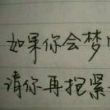 如果你会梦
请你再抱紧